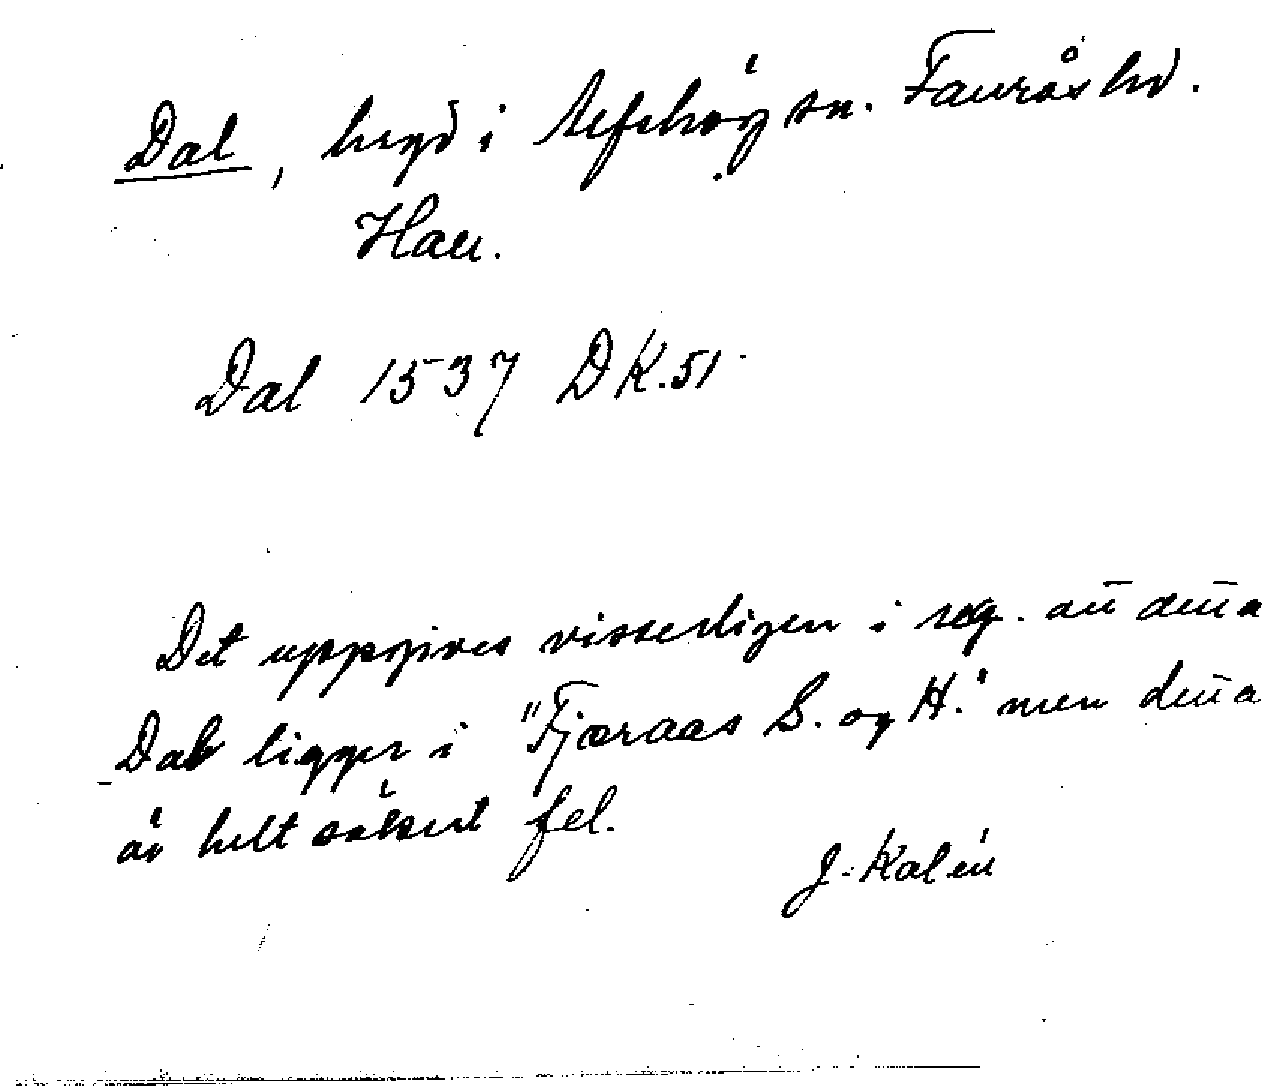 Dal, bygd i Alfshög sn. Fauråshd.
Hall.
Dal 1537 DK.51
Det uppgives visserligen i reg. att denna
Dal ligger i "Fjæraas S. og H." men detta
är helt säkert fel.
J. Kalén